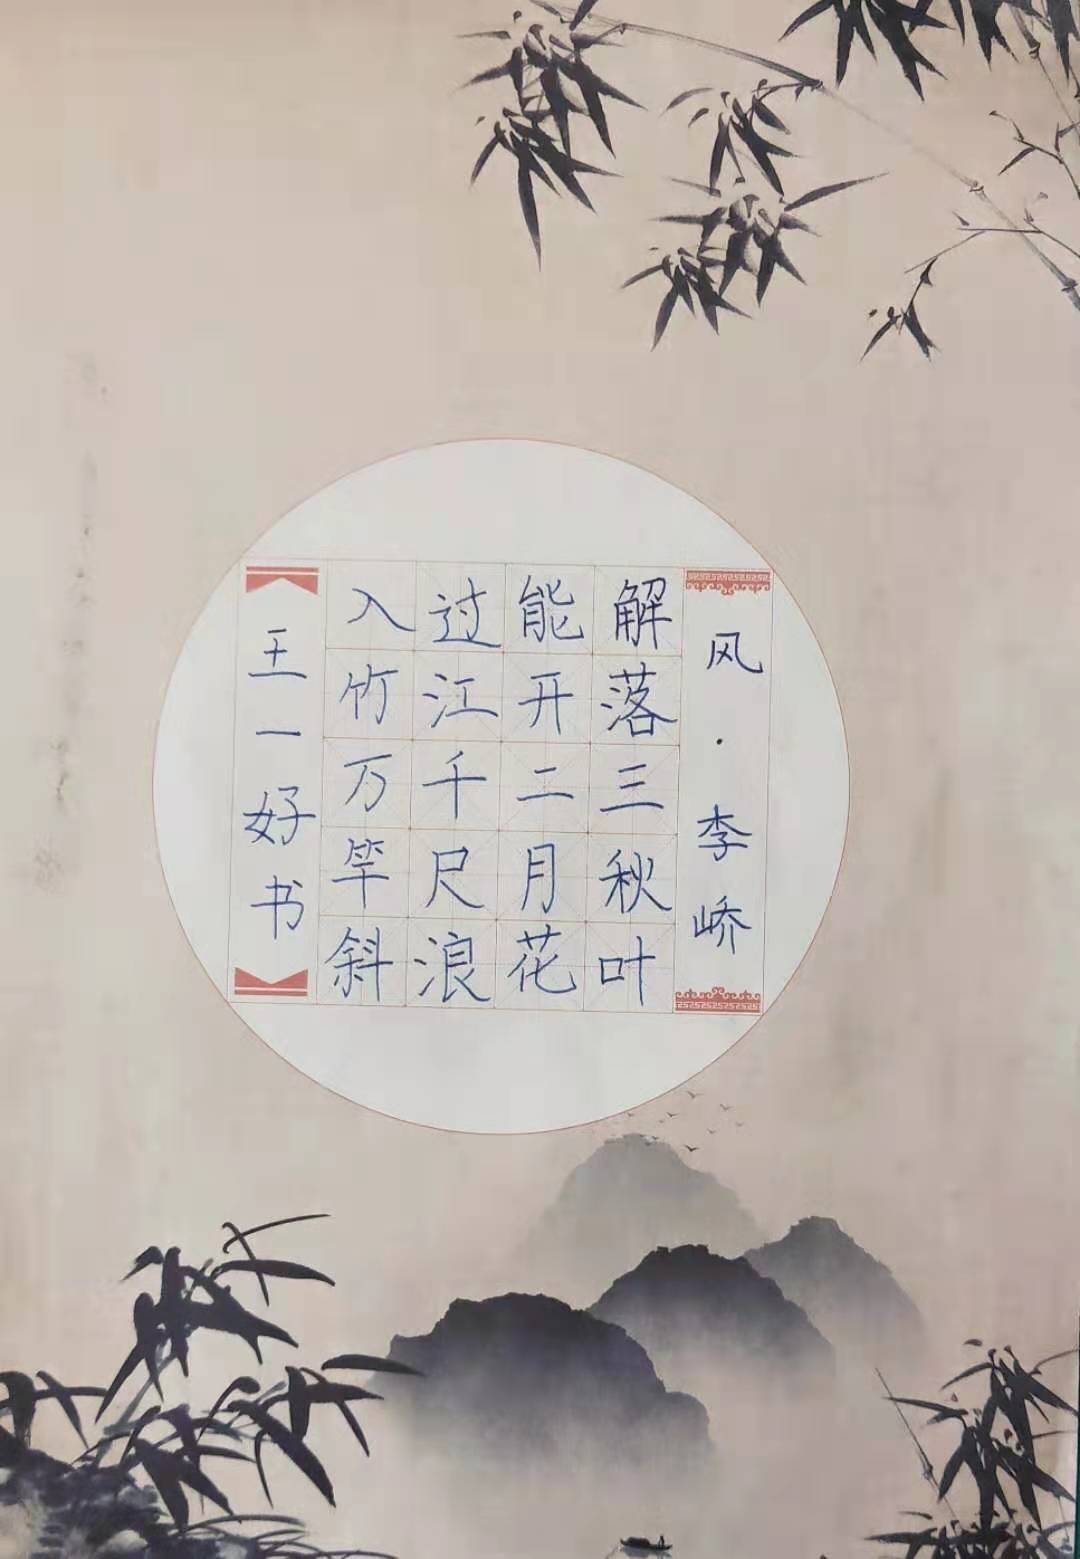 风·李峤
解落三秋叶
能开二月花
过江千尺浪
入竹万竿斜
王一好书